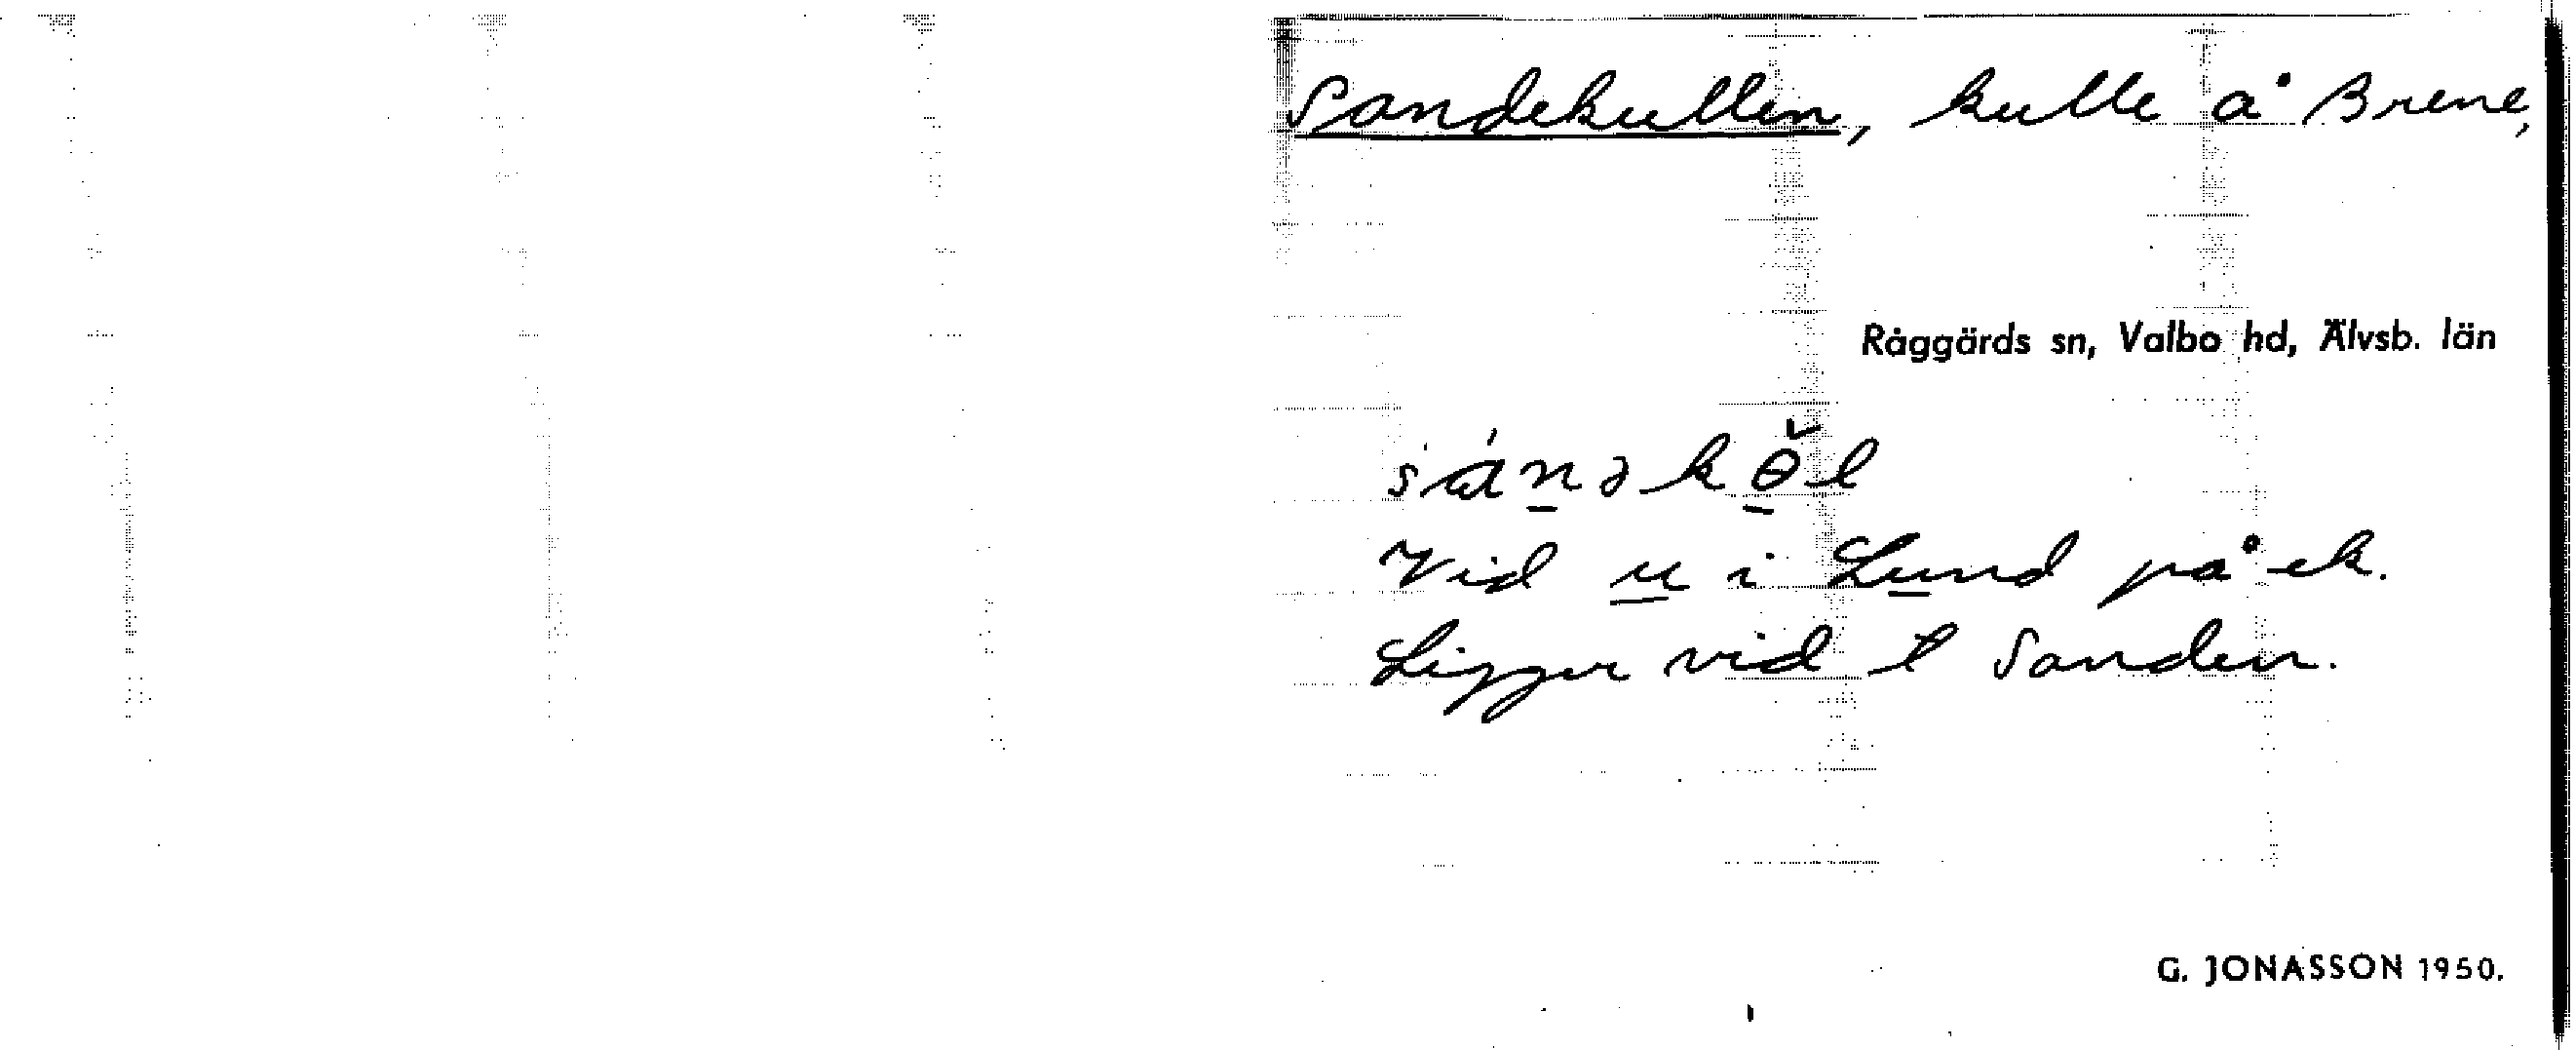 Sandekullen, kulle å Brene,
Råggärds sn, Valbo hd, Älvsb. län
sánəkɵ̌l
Vid u i Lund på ek.
Ligger vid t Sanden.
G. JONASSON 1950.